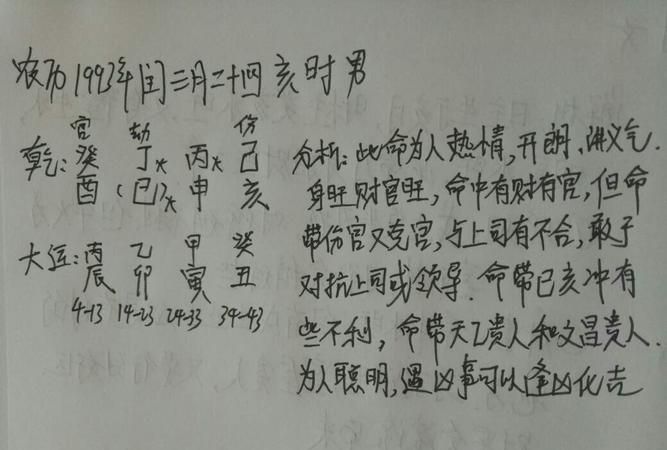 农历1993年闰三月二十四亥时男
官 劫 伤
乾: 癸 丁火 丙火 己
酉 (巳)火 申 亥
大运: 丙 乙 甲 癸
辰 卯 寅 丑
4-13 14-23 24-33 34-43
分析: 此命为人热情,开朗、讲义气.
身旺财官旺,命中有财有官,但命
带伤官又克官,与上司有不合,敢于
对抗上司或领导.命带巳亥冲有
些不利,命带天乙贵人和文昌贵人.
为人聪明,遇凶事可以逢凶化吉